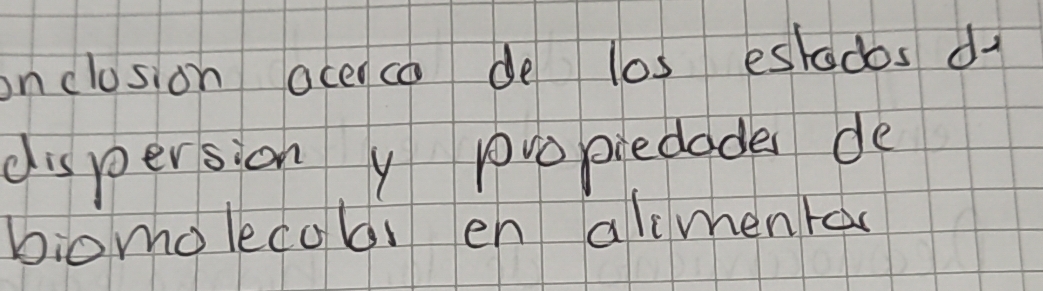 onclusion acerca de los estados de
dispersion y propiedades de
biomoleculas en alimentos